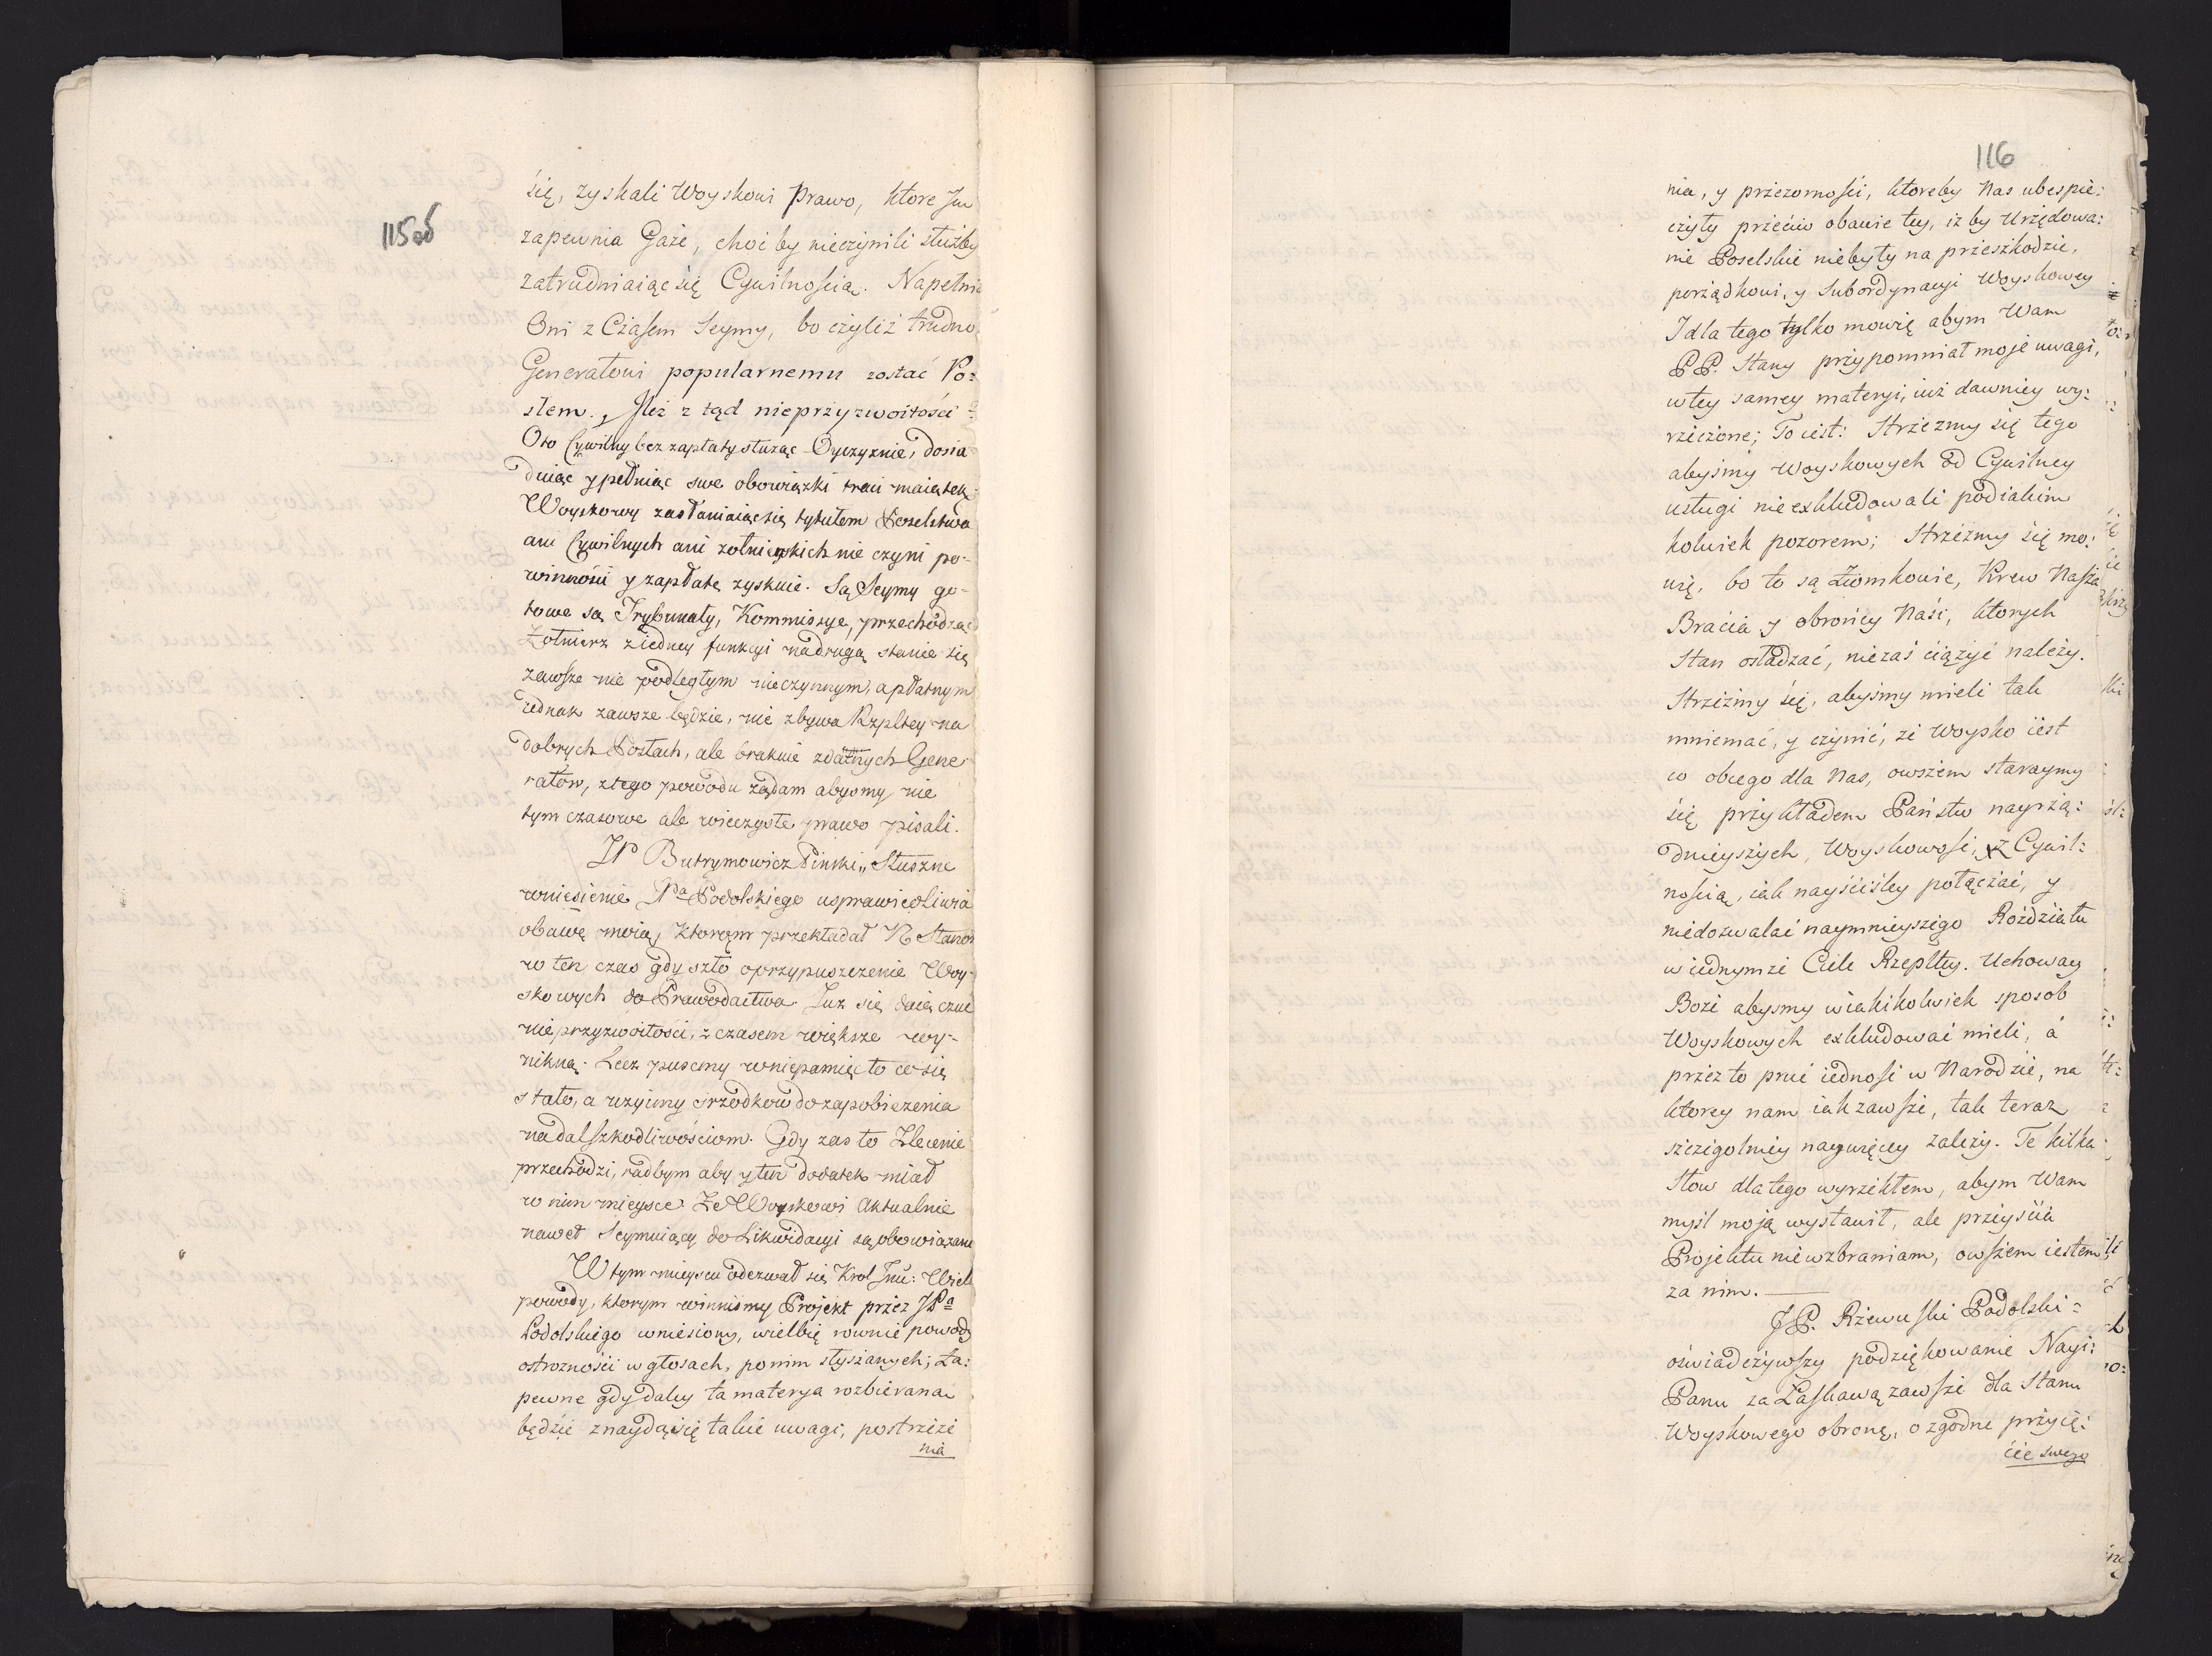 115 об
się, zyskali Woyskowi Prawo, ktore Im
zapewnia Gaże, choćby nieczynili służby
zatrudniaiąc się Cywilnością. Napełnią
Oni z Czasem Seymy, bo czyliż trudno
Generałowi popularnemu zostać Po=
słem. Ileż z tąd nieprzyzwoitości
Oto Cywilny bez zapłaty służąc Oyczyznie, dosia
duiąc y pełniąc swe obowiązki traci maiątek
Woyskowy zasłaniaiąc się tytułem Poselstwa
ani Cywilnych ani żołnierskich nie czyni po-
winności y zapłatę zyskuie. Są Seymy go-
towe są Trybunały, Kommissye, przechodząc
Zołnierz z iedney funkcyi na drugą stanie się
zawsze nie podległym nieczynnym, a płatnym
iednak zawsze będzie, nie zbywa Rzpltey na
dobrych Posłach, ale brakuie zdatnych Gene
rałow, z tego powodu żądam abysmy nie
tym czasowe ale wieczyste prawo pisali.
JP Butrymowicz Pinski „ Słuszne
wniesienie JPa Podolskiego usprawiedliwia
obawę moią, ktorąm przekładał N. Stanom
w ten czas gdy szło o przypuszczenie Woy-
skowych do Prawodactwa. Iuz się daią czuć
nieprzyzwoitości, z czasem większe wy-
nikną. Lecz pusćmy w niepamięc to co się
stało, a uzyimy srzodkow do zapobieżenia
na dal szkodliwościom. Gdy zas to Zlecenie
przechodzi, radbym aby y ten dodatek miał
w nim mieysce. Ze Woyskowi Aktualnie
nawet Seymuiący do Likwidacyi są obowiązani
W tym mieyscu odezwał się Krol Jmć: Wielb
powody, ktorym winnismy Projekt przez JPa
Podolskiego wniesiony, wielbię rownie powody
ostrozności w głosach, po nim słyszanych; Za=
pewne gdy daley ta materya rozbierana
będzie znaydą się takie uwagi, postrzeże
nia
116
nia, y przezorności, ktoreby Nas ubespie=
czyły przeciw obawie tey, iż by Urzędowa=
nie Poselskie niebyły na przeszkodzie,
porządkowi, y Subordynacyi Woyskowey
I dla tego tylko mowię abym Wam
PP. Stany przypomniał moje uwagi,
w tey samey materyi, iuż dawniey wy=
rzeczone; To iest: Strzeżmy się tego
abyśmy Woyskowych od Cywilney
usługi nie exkludowali pod iakim
kolwiek pozorem; Strzeżmy się mo=
wię, bo to są Ziomkowie, Krew Nasza
Bracia y obrońcy Naśi, ktorych
Stan osładzać, nie zaś ciążyć należy.
Strzeżmy się, abyśmy mieli tak
mniemać, y czynić, że Woysko iest
co obcego dla Nas, owszem staraymy
się przykładem Państw nayrzą=
dnieyszych, Woyskowość, z Cywil=
nością, iak nayściśley połączać, y
niedozwalać naymnieyszego Rozdziału
w iednymże Ciele Rzepltey. Uchoway
Boże abyśmy w iakikolwiek sposob
Woyskowych exkludować mieli, á
przez to pruć iedność w Narodzie, na
ktorey nam iak zawsze, tak teraz
szczegolniey naywięcey zależy. Te kilka
Słow dla tego wyrzekłem, abym Wam
myśl moją wystawił, ale przeyścia
Projektu nie wzbraniam, owszem iestem
za nim.
JP. Rzewuski Podolski=
oświadczywszy podziękowanie Nayi=
Panu za Łaskawą zawsze dla Stanu
Woyskowego obronę, o zgodne przyię=
cie swego